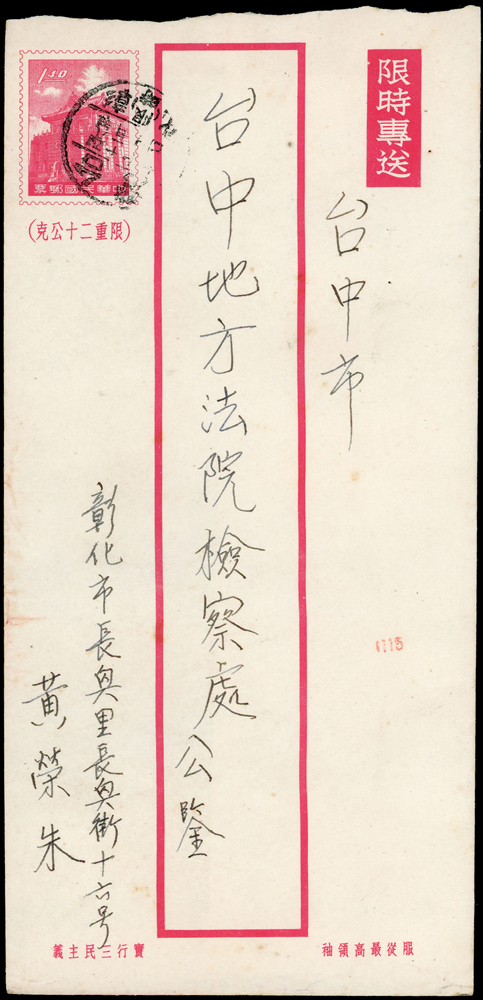 限時專送
台中市
台中地方法院檢察處 公鑒
彰化市長興里長興街十六号
黃榮朱
1.40
中華民國郵票
(限重二十公克)
1115
服從最高領袖
實行三民主義